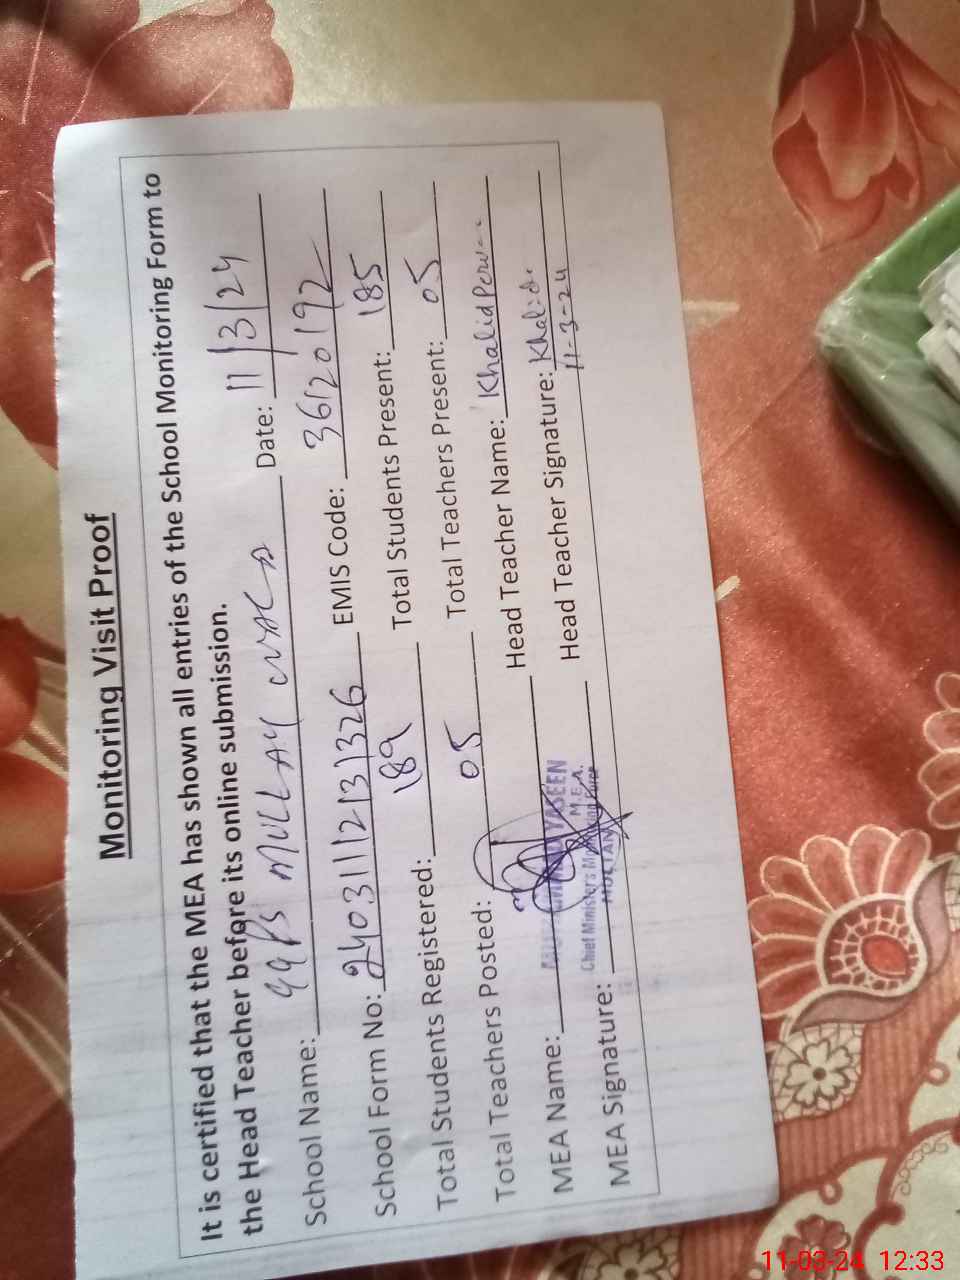 Monitoring Visit Proof
It is certified that the MEA has shown all entries of the School Monitoring Form to
the Head Teacher before its online submission.
School Name: GGPS MULLAY Date: 11/3/24
School Form No: 2403111213)326 EMIS Code: 36120192
Total Students Registered: 189 Total Students Present: 185
Total Teachers Posted: 05 Total Teachers Present: 05
MEA Name: YASEEN Head Teacher Name: Khalid
M.E.A.
Chief Ministers Monitoring Force
MULTAN
MEA Signature: Head Teacher Signature: Khalid
11-3-24
11-03-24 12:33